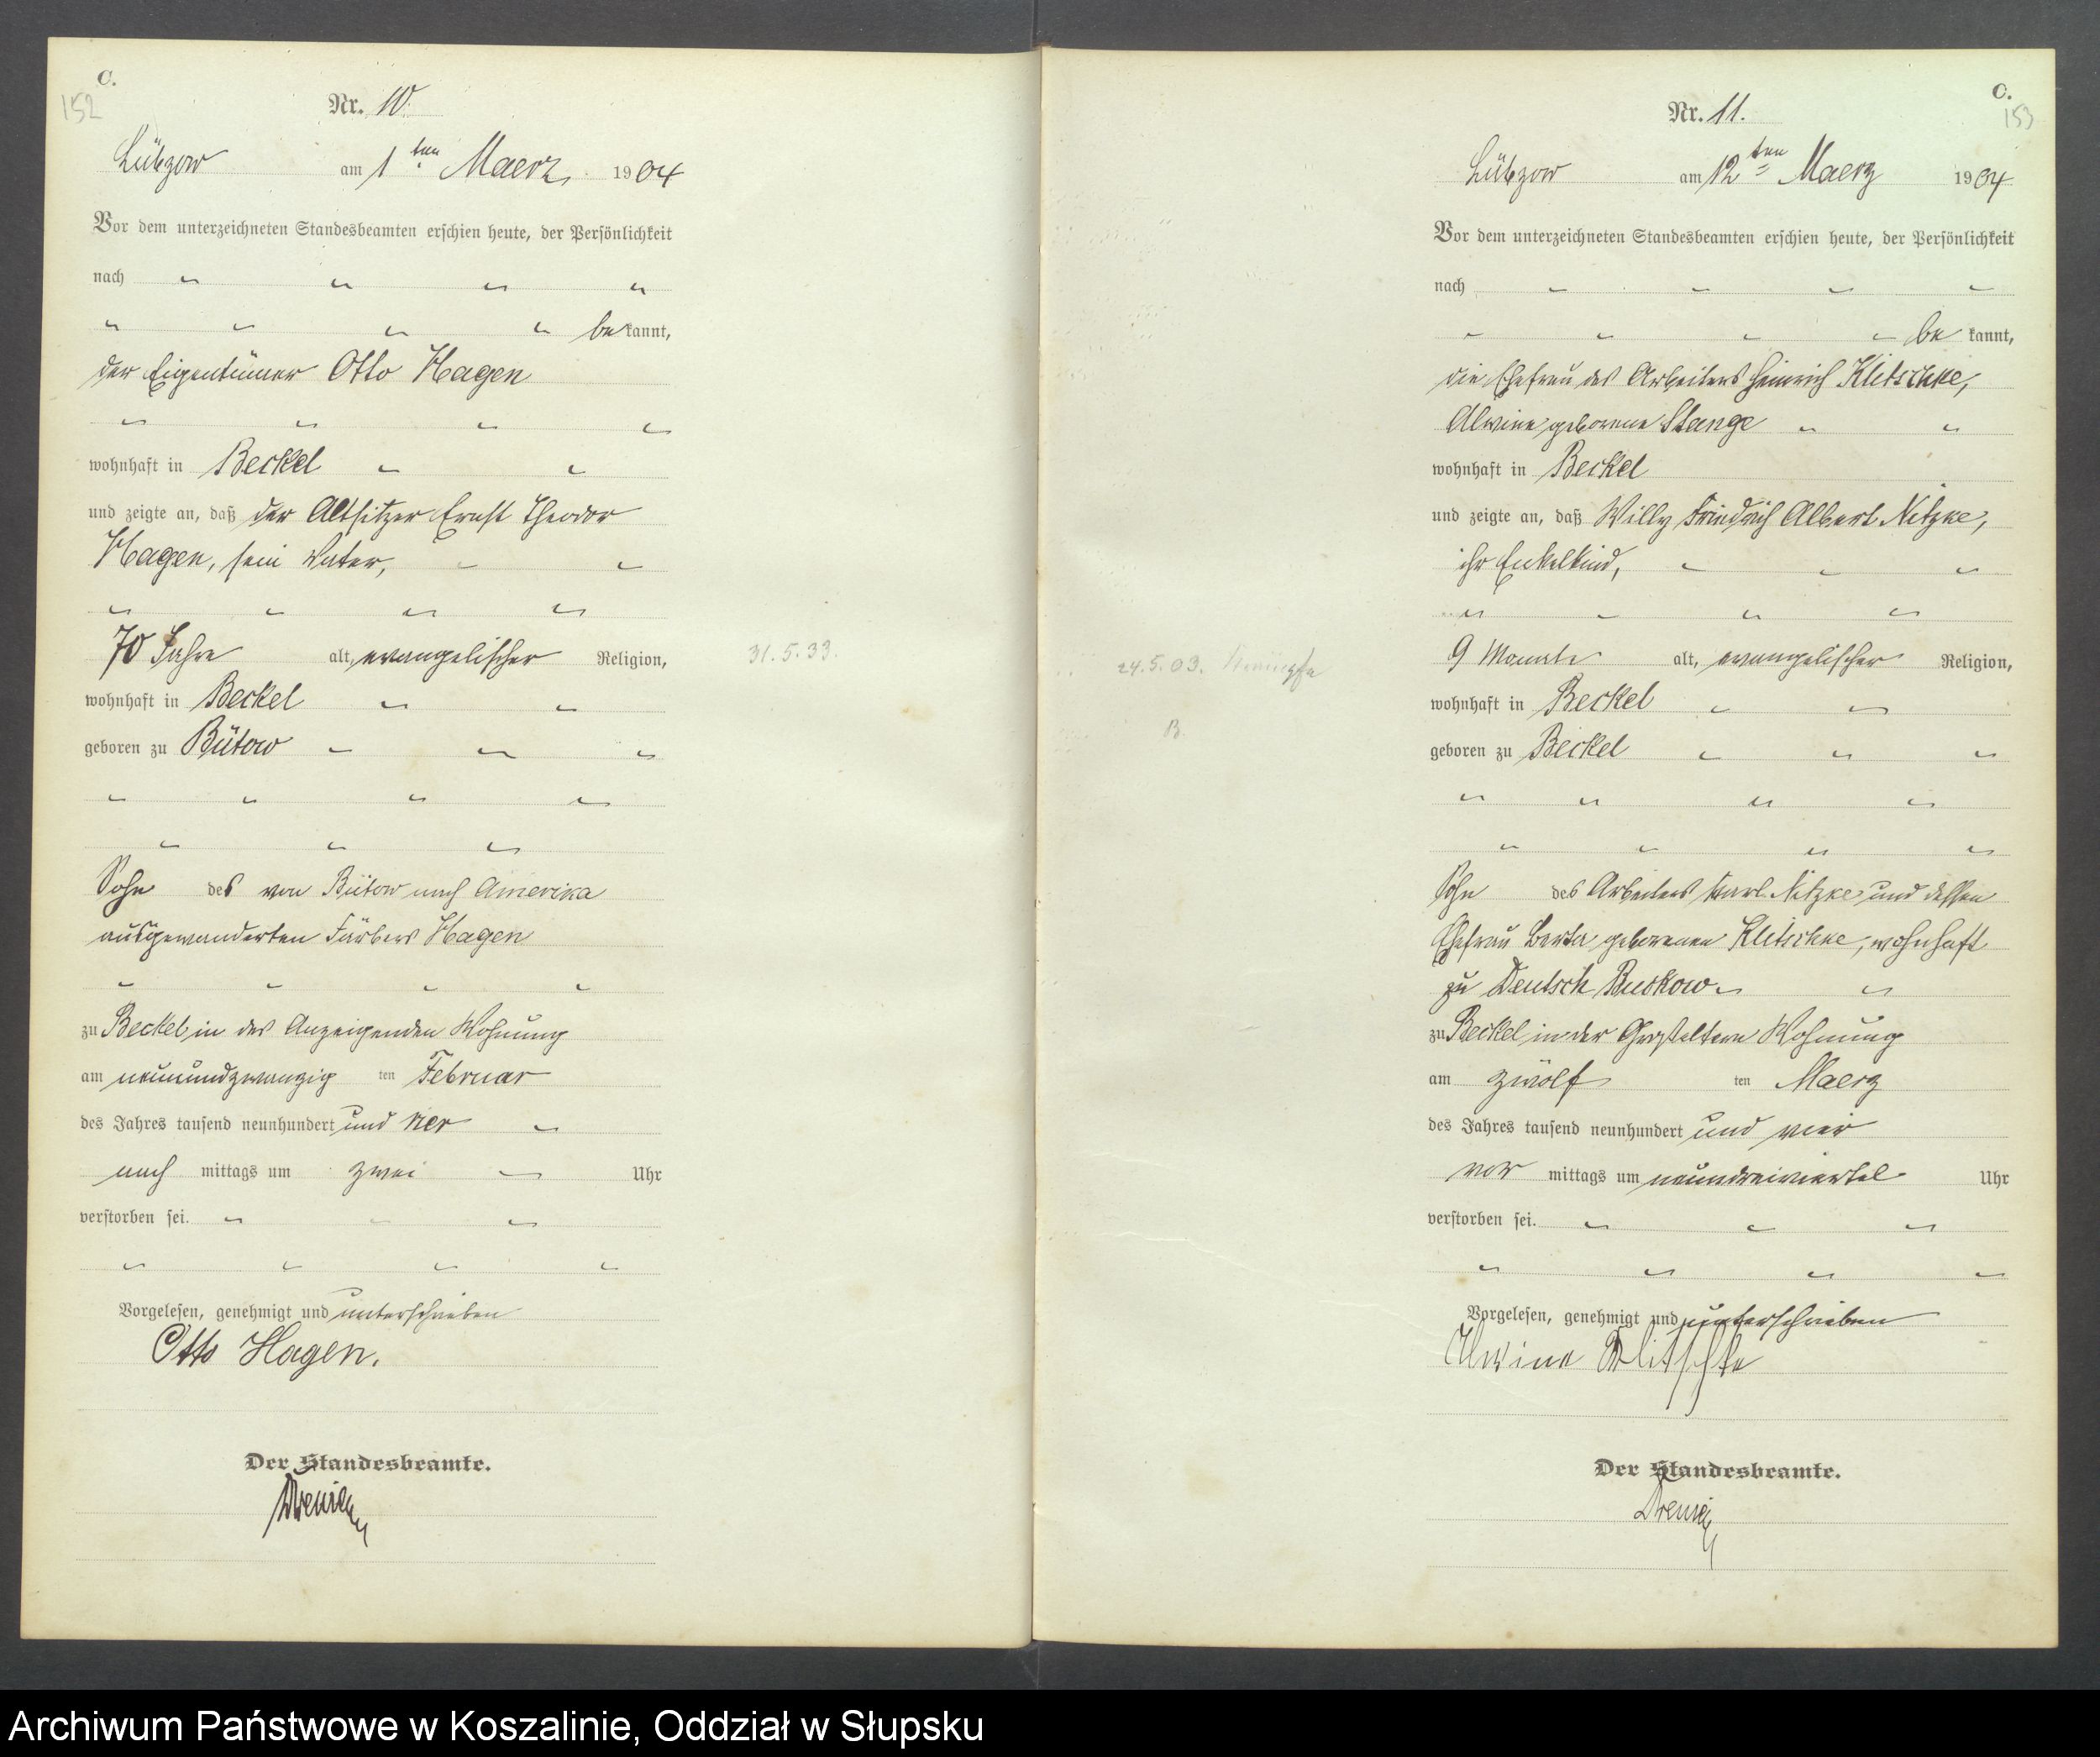 C.
152
Nr. 10.
Lübzow am 1ten Maerz 1904
Vor dem unterzeichneten Standesbeamten erschien heute, der Persönlichkeit
nach
be kannt,
der Eigentümer Otto Hagen
wohnhaft in Beckel
und zeigte an, daß der Altsitzer Ernst Theodor
Hagen, sein Vater,
70 Jahre alt, evangelischer Religion,
31.5.33.
wohnhaft in Beckel
geboren zu Bütow
Sohn des von Bütow nach Amerika
ausgewanderten Färbers Hagen
zu Beckel in des Anzeigenden Wohnung
am neunundzwanzig ten Februar
des Jahres tausend neunhundert und vier
nach mittags um zwei Uhr
verstorben sei.
Vorgelesen, genehmigt und unterschrieben
Otto Hagen.
Der Standesbeamte.
C.
153
Nr. 11.
Lübzow am 12ten Maerz 1904
Vor dem unterzeichneten Standesbeamten erschien heute, der Persönlichkeit
nach
be kannt,
die Ehefrau des Arbeiters Heinrich Klitschke,
Alwine geborene Stange
wohnhaft in Beckel
und zeigte an, daß Willy Friedrich Albert Nitzke,
ihr Enkelkind,
24.5.03. Krämpfe
9 Monate alt, evangelischer Religion,
B.
wohnhaft in Beckel
geboren zu Beckel
Sohn des Arbeiters Karl Nitzke und dessen
Ehefrau Berta geborenen Klitschke, wohnhaft
zu Deutsch Buckow
zu Beckel in der Großeltern Wohnung
am zwölf ten Maerz
des Jahres tausend neunhundert und vier
vor mittags um neundreiviertel Uhr
verstorben sei.
Vorgelesen, genehmigt und unterschrieben
Alwine Klitschke
Der Standesbeamte.
Archiwum Państwowe w Koszalinie, Oddział w Słupsku